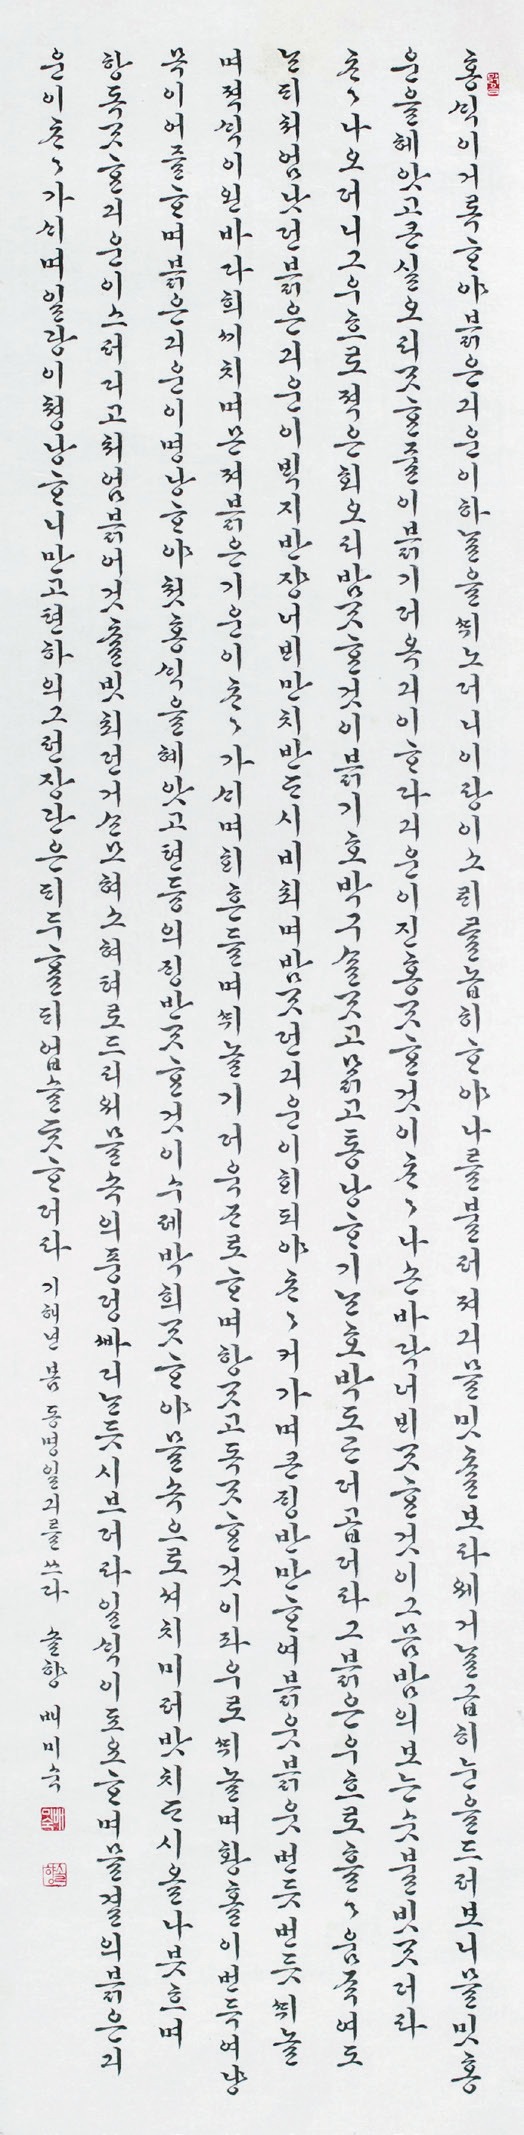 홍싴이 거록ᄒᆞ야 븕은 긔운이 하ᄂᆞᆯ을 ᄯᅱ노더니 이랑이 소ᄅᆡᄅᆞᆯ 놉히 ᄒᆞ야 나ᄅᆞᆯ 불러 져긔 믈밋ᄎᆞᆯ 보라 웨거ᄂᆞᆯ 급히 눈을 드러 보니 믈밋 홍
운을 헤앗고 큰 실오리 ᄀᆞᆺᄒᆞᆫ 줄이 븕기 더욱 긔이ᄒᆞ라 긔운이 진홍 ᄀᆞᆺᄒᆞᆫ 것이 ᄎᆞᄎᆞ 나 손바닥 너ᄇᆡ ᄀᆞᆺᄒᆞᆫ 것이 그믐밤의 보ᄂᆞᆫ 숫불빗 ᄀᆞᆺ더라
ᄎᆞᄎᆞ 나오더니 그 우흐로 젹은 회오리밤 ᄀᆞᆺᄒᆞᆫ 것이 븕기 호박 구ᄉᆞᆯ ᄀᆞᆺ고 ᄆᆞᆰ고 통낭ᄒᆞ기ᄂᆞᆫ 호박도곤 더 곱더라 그 븕은 우흐로 흘흘 움죽여 도
ᄂᆞᆫᄃᆡ 처엄 낫던 븕은 긔운이 ᄇᆡᆨ지 반 쟝 너ᄇᆡ만치 반ᄃᆞ시 비최며 밤 ᄀᆞᆺ던 긔운이 ᄒᆡ 되야 ᄎᆞᄎᆞ 커 가며 큰 ᄌᆡᆼ반만 ᄒᆞ여 븕웃븕웃 번듯번듯 ᄯᅱ놀
며 젹ᄉᆡᆨ이 왼 바다희 ᄭᅵ치며 몬져 븕은 기운이 ᄎᆞᄎᆞ 가ᄉᆡ며 ᄒᆡ 흔들며 ᄯᅱ놀기 더욱 ᄌᆞ로 ᄒᆞ며 항 ᄀᆞᆺ고 독 ᄀᆞᆺᄒᆞᆫ 것이 좌우로 ᄯᅱ놀며 황홀이 번득여 냥
목이 어즐ᄒᆞ며 븕은 긔운이 명낭ᄒᆞ야 첫 홍ᄉᆡᆨ을 헤앗고 텬듕의 ᄌᆡᆼ반 ᄀᆞᆺᄒᆞᆫ 것이 수레박희 ᄀᆞᆺᄒᆞ야 믈 속으로셔 치미러 밧치ᄃᆞ시 올나 븟흐며
항 독 ᄀᆞᆺᄒᆞᆫ 긔운이 스러디고 처엄 븕어 것ᄎᆞᆯ 빗최던 거ᄉᆞᆫ 모혀 소혀텨로 드리워 믈 속의 풍덩 ᄲᅡ디ᄂᆞᆫ ᄃᆞᆺ 시브더라 일ᄉᆡᆨ이 됴요ᄒᆞ며 믈결의 븕은 긔
운이 ᄎᆞᄎᆞ 가ᄉᆡ며 일광이 쳥낭ᄒᆞ니 만고텬하의 그런 장관은 ᄃᆡ두ᄒᆞᆯ ᄃᆡ 업ᄉᆞᆯ ᄃᆞᆺᄒᆞ더라 기해년 봄 동명일긔를 쓰다 솔향 배미숙